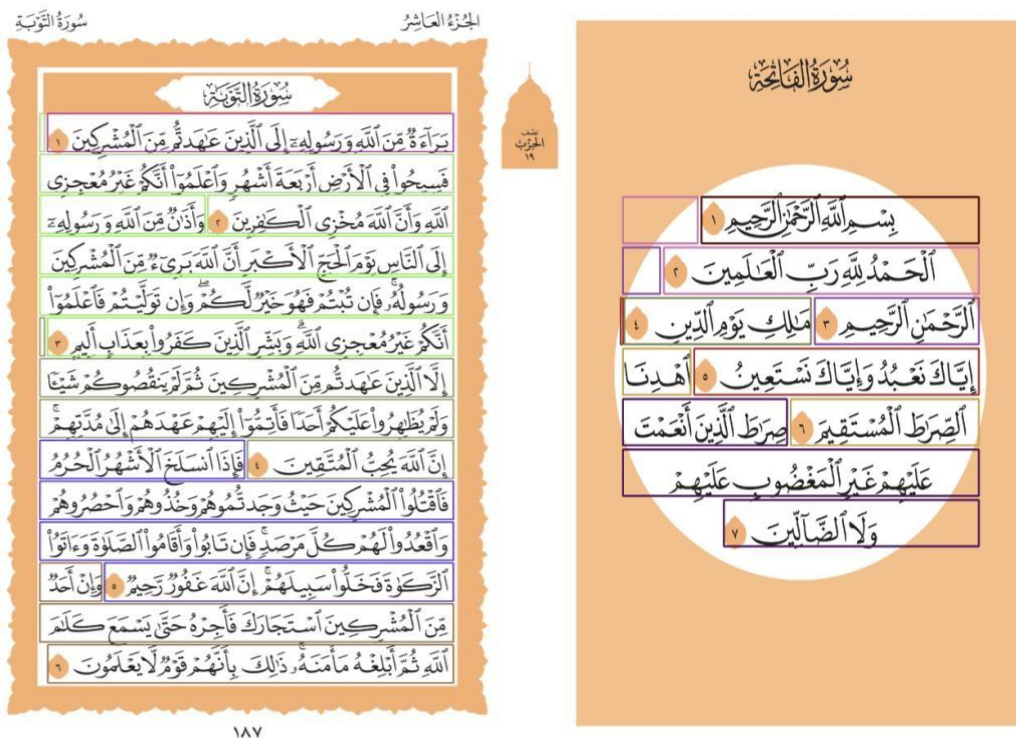 سُورَةُ التَّوْبَةِ
الجُزْءُ العَاشِرُ
سُورَةُ التَّوْبَةِ
بَرَآءَةٌ مِّنَ ٱللَّهِ وَرَسُولِهِۦٓ إِلَى ٱلَّذِينَ عَٰهَدتُّم مِّنَ ٱلْمُشْرِكِينَ ١
فَسِيحُوا۟ فِى ٱلْأَرْضِ أَرْبَعَةَ أَشْهُرٍ وَٱعْلَمُوٓا۟ أَنَّكُمْ غَيْرُ مُعْجِزِى
ٱللَّهِ وَأَنَّ ٱللَّهَ مُخْزِى ٱلْكَٰفِرِينَ ٢ وَأَذَٰنٌ مِّنَ ٱللَّهِ وَرَسُولِهِۦٓ
إِلَى ٱلنَّاسِ يَوْمَ ٱلْحَجِّ ٱلْأَكْبَرِ أَنَّ ٱللَّهَ بَرِىٓءٌ مِّنَ ٱلْمُشْرِكِينَ
وَرَسُولُهُۥ فَإِن تُبْتُمْ فَهُوَ خَيْرٌ لَّكُمْ وَإِن تَوَلَّيْتُمْ فَٱعْلَمُوٓا۟
أَنَّكُمْ غَيْرُ مُعْجِزِى ٱللَّهِ وَبَشِّرِ ٱلَّذِينَ كَفَرُوا۟ بِعَذَابٍ أَلِيمٍ ٣
إِلَّا ٱلَّذِينَ عَٰهَدتُّم مِّنَ ٱلْمُشْرِكِينَ ثُمَّ لَمْ يَنقُصُوكُمْ شَيْـًٔا
وَلَمْ يُظَٰهِرُوا۟ عَلَيْكُمْ أَحَدًا فَأَتِمُّوٓا۟ إِلَيْهِمْ عَهْدَهُمْ إِلَىٰ مُدَّتِهِمْ
إِنَّ ٱللَّهَ يُحِبُّ ٱلْمُتَّقِينَ ٤ فَإِذَا ٱنسَلَخَ ٱلْأَشْهُرُ ٱلْحُرُمُ
فَٱقْتُلُوا۟ ٱلْمُشْرِكِينَ حَيْثُ وَجَدتُّمُوهُمْ وَخُذُوهُمْ وَٱحْصُرُوهُمْ
وَٱقْعُدُوا۟ لَهُمْ كُلَّ مَرْصَدٍ فَإِن تَابُوا۟ وَأَقَامُوا۟ ٱلصَّلَوٰةَ وَءَاتَوُا۟
ٱلزَّكَوٰةَ فَخَلُّوا۟ سَبِيلَهُمْ إِنَّ ٱللَّهَ غَفُورٌ رَّحِيمٌ ٥ وَإِنْ أَحَدٌ
مِّنَ ٱلْمُشْرِكِينَ ٱسْتَجَارَكَ فَأَجِرْهُ حَتَّىٰ يَسْمَعَ كَلَٰمَ
ٱللَّهِ ثُمَّ أَبْلِغْهُ مَأْمَنَهُۥ ذَٰلِكَ بِأَنَّهُمْ قَوْمٌ لَّا يَعْلَمُونَ ٦
١٨٧
نصف
الحزب
١٩
سُورَةُ الفَاتِحَةِ
بِسْمِ ٱللَّهِ ٱلرَّحْمَٰنِ ٱلرَّحِيمِ ١
ٱلْحَمْدُ لِلَّهِ رَبِّ ٱلْعَٰلَمِينَ ٢
ٱلرَّحْمَٰنِ ٱلرَّحِيمِ ٣ مَٰلِكِ يَوْمِ ٱلدِّينِ ٤
إِيَّاكَ نَعْبُدُ وَإِيَّاكَ نَسْتَعِينُ ٥ ٱهْدِنَا
ٱلصِّرَٰطَ ٱلْمُسْتَقِيمَ ٦ صِرَٰطَ ٱلَّذِينَ أَنْعَمْتَ
عَلَيْهِمْ غَيْرِ ٱلْمَغْضُوبِ عَلَيْهِمْ
وَلَا ٱلضَّآلِّينَ ٧